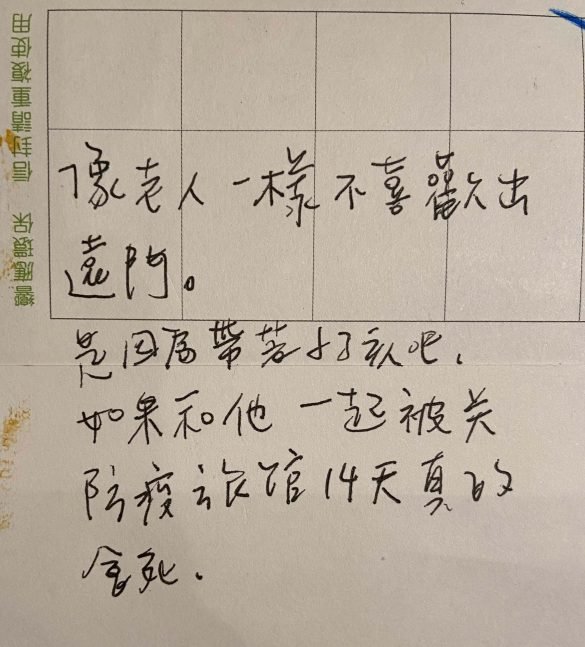 響應環保 信封請重複使用
像老人一樣不喜歡出
遠門。
是因為帶著小孩吧.
如果和他一起被关
防疫旅馆14天真的
會死.